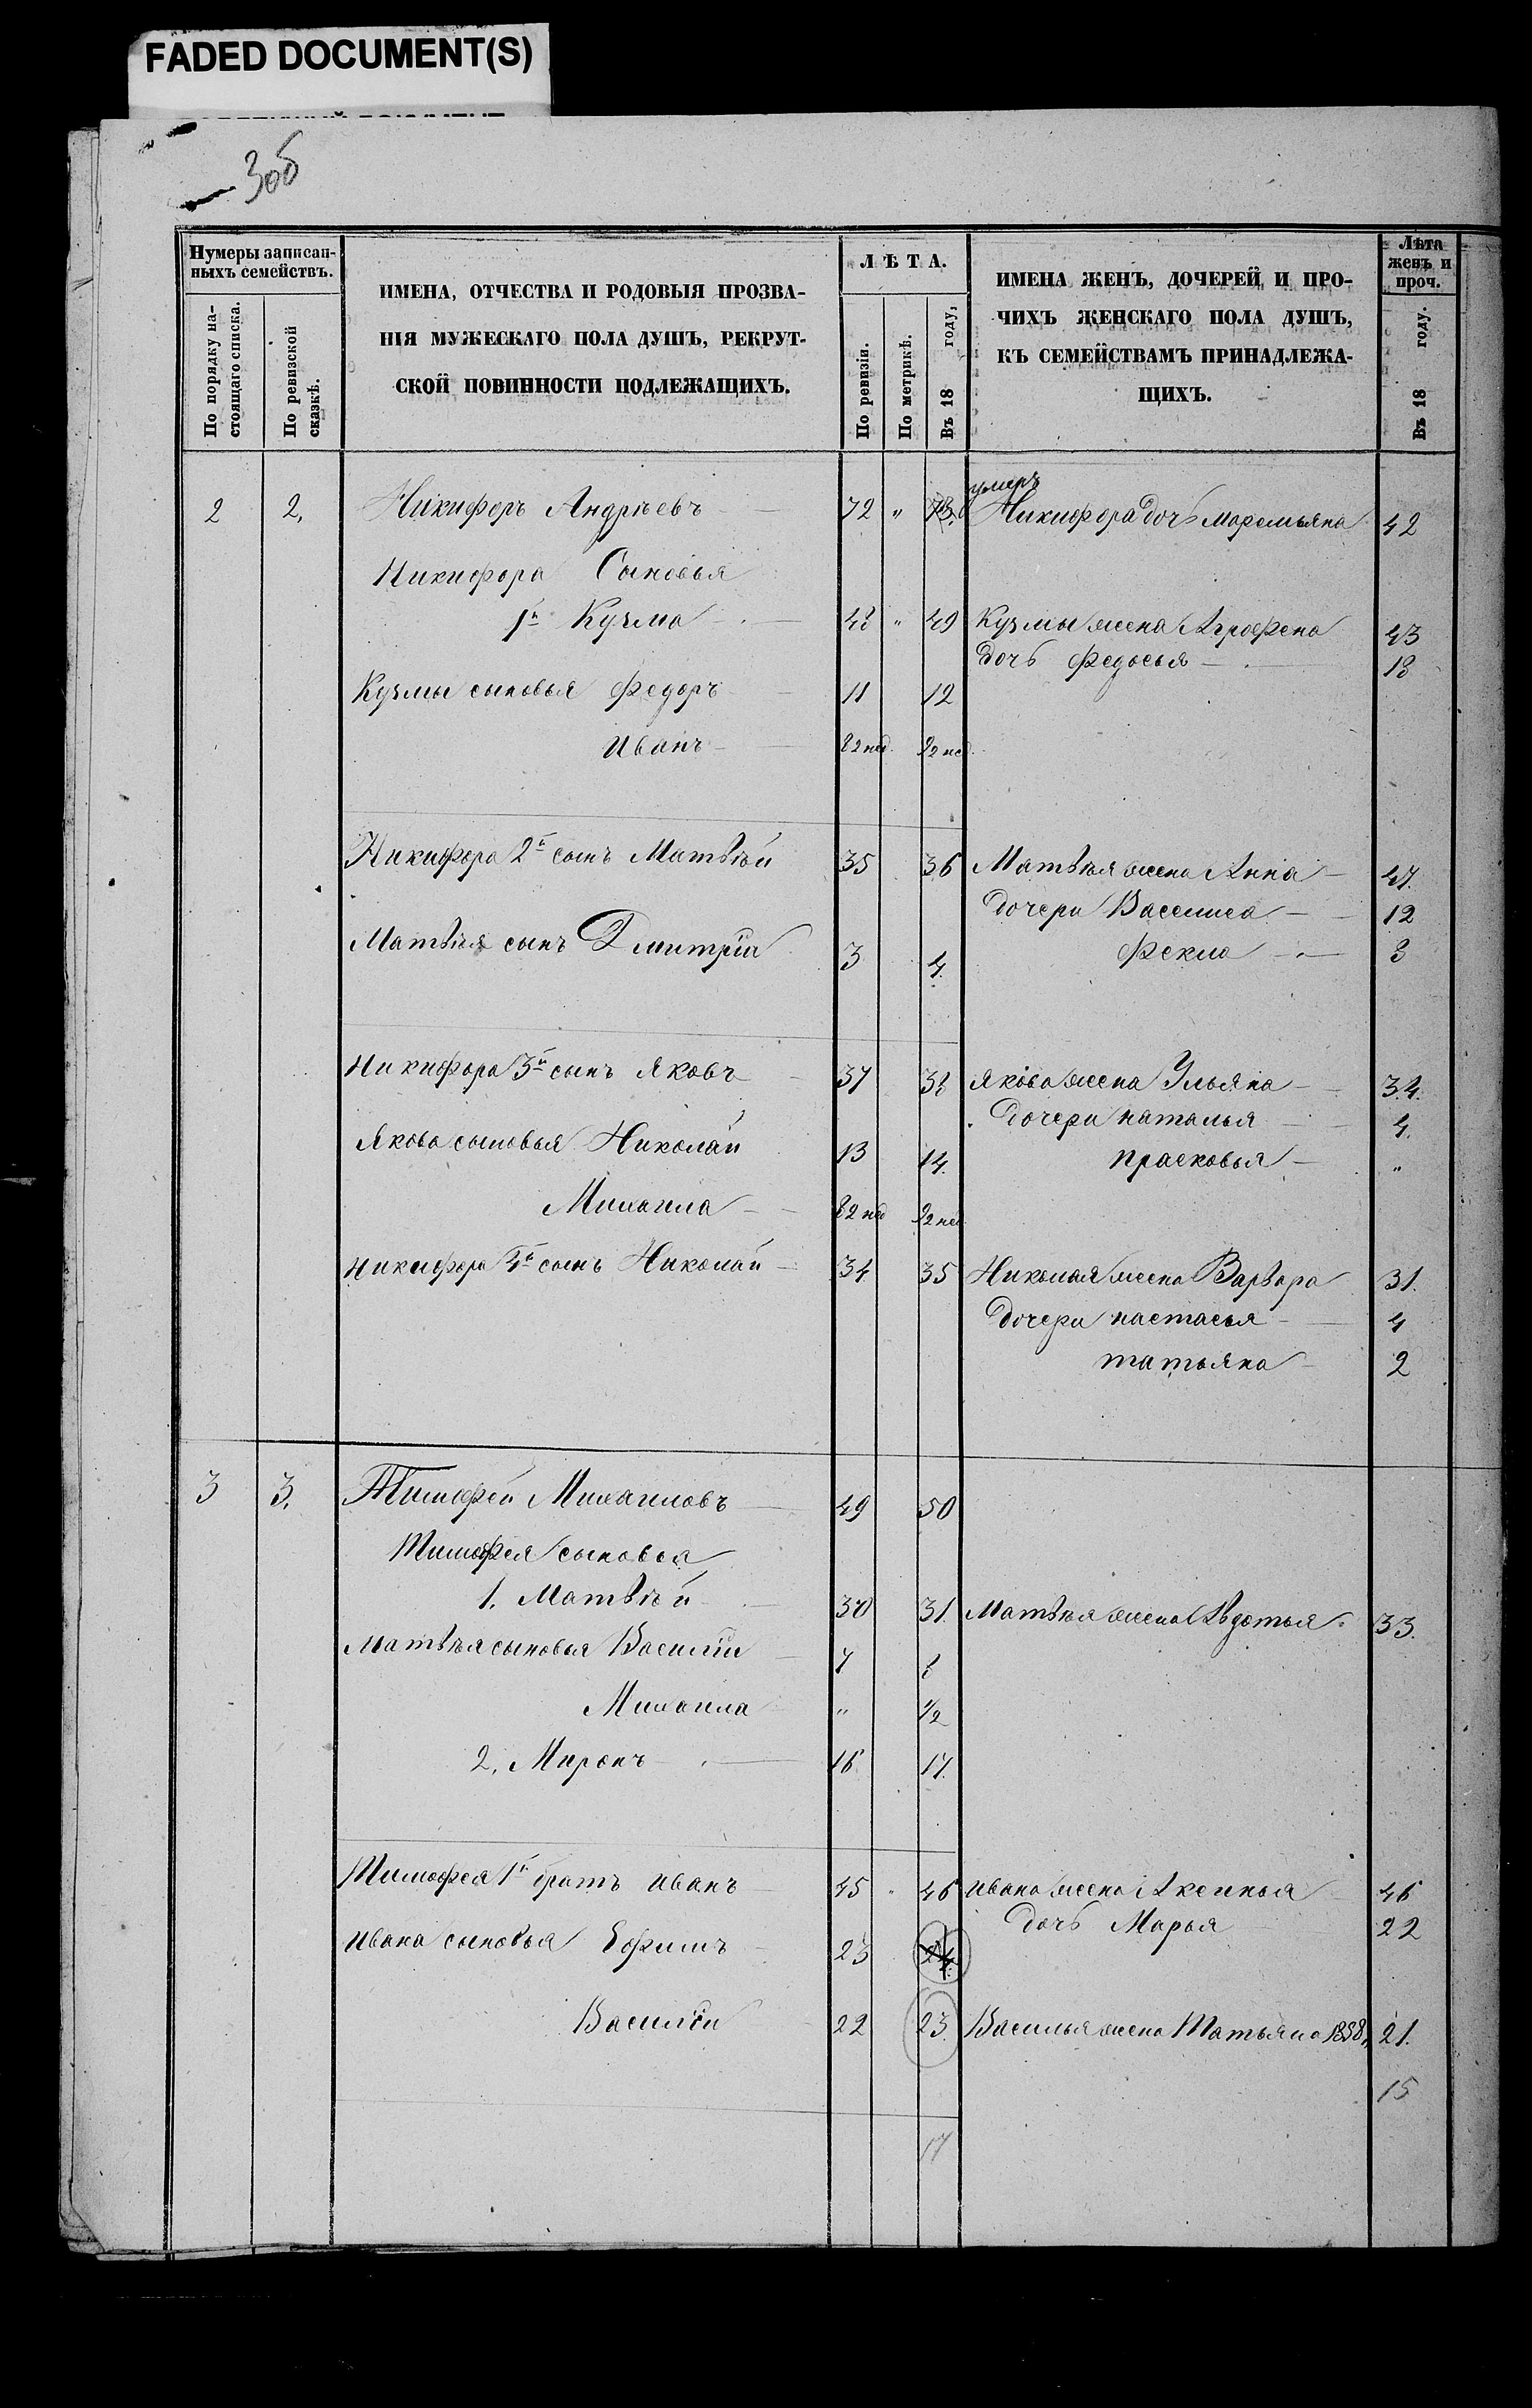 FADED DOCUMENT(S)
306
Нумеры записан-
ныхъ семействъ.
По порядку на-
стоящаго списка.
По ревизской
сказкѣ.
ИМЕНА, ОТЧЕСТВА И РОДОВЫЯ ПРОЗВА-
НІЯ МУЖЕСКАГО ПОЛА ДУШЪ, РЕКРУТ-
СКОЙ ПОВИННОСТИ ПОДЛЕЖАЩИХЪ.
ЛѢТА.
По ревизіи.
По метрикѣ.
Въ 18 году,
ИМЕНА ЖЕНЪ, ДОЧЕРЕЙ И ПРО-
ЧИХЪ ЖЕНСКАГО ПОЛА ДУШЪ,
КЪ СЕМЕЙСТВАМЪ ПРИНАДЛЕЖА-
ЩИХЪ.
Лѣта
женъ и
проч.
Въ 18 году.
умеръ
2 2. Никифоръ Андрѣевъ 72 " 73. Никифора дочь Маремьяна 42
Никифора Сыновья
1й Кузма 48 " 49 Кузмы жена Аграфена 43
дочь Федосья 18
Кузмы сыновья Федоръ 11 12
Иванъ 82 нед. 92 нед.
Никифора 2й сынъ Матвѣй 35 36 Матвѣя жена Анна 47.
дочери Василиса 12
Матвѣя сынъ Дмитрій 3 4. Фекла 3
Никифора 3й сынъ Яковъ 37 38 Якова жена Ульяна 34.
дочери Наталья 4.
Якова сыновья Николай 13 14. Прасковья "
Михаила 82 нед 92 нед.
Никифора 4й сынъ Николай 34 35 Николая жена Варвара 31.
дочери Настасья 4
Татьяна 2
3 3. Тимофей Михаиловъ 49 50
Тимофея сыновья
1. Матвѣй 30 31. Матвѣя жена Авдотья 33.
Матвѣя сыновья Василій 7 8
Михаила " 1/2
2. Миронъ 16 17.
Тимофея 1й братъ Иванъ 45 " 46 Ивана жена Аксинья 46
дочь Марья 22
Ивана сыновья Ефимъ 23 24.
Василій 22 23. Василья жена Татьяна 1858, 21.
15
17